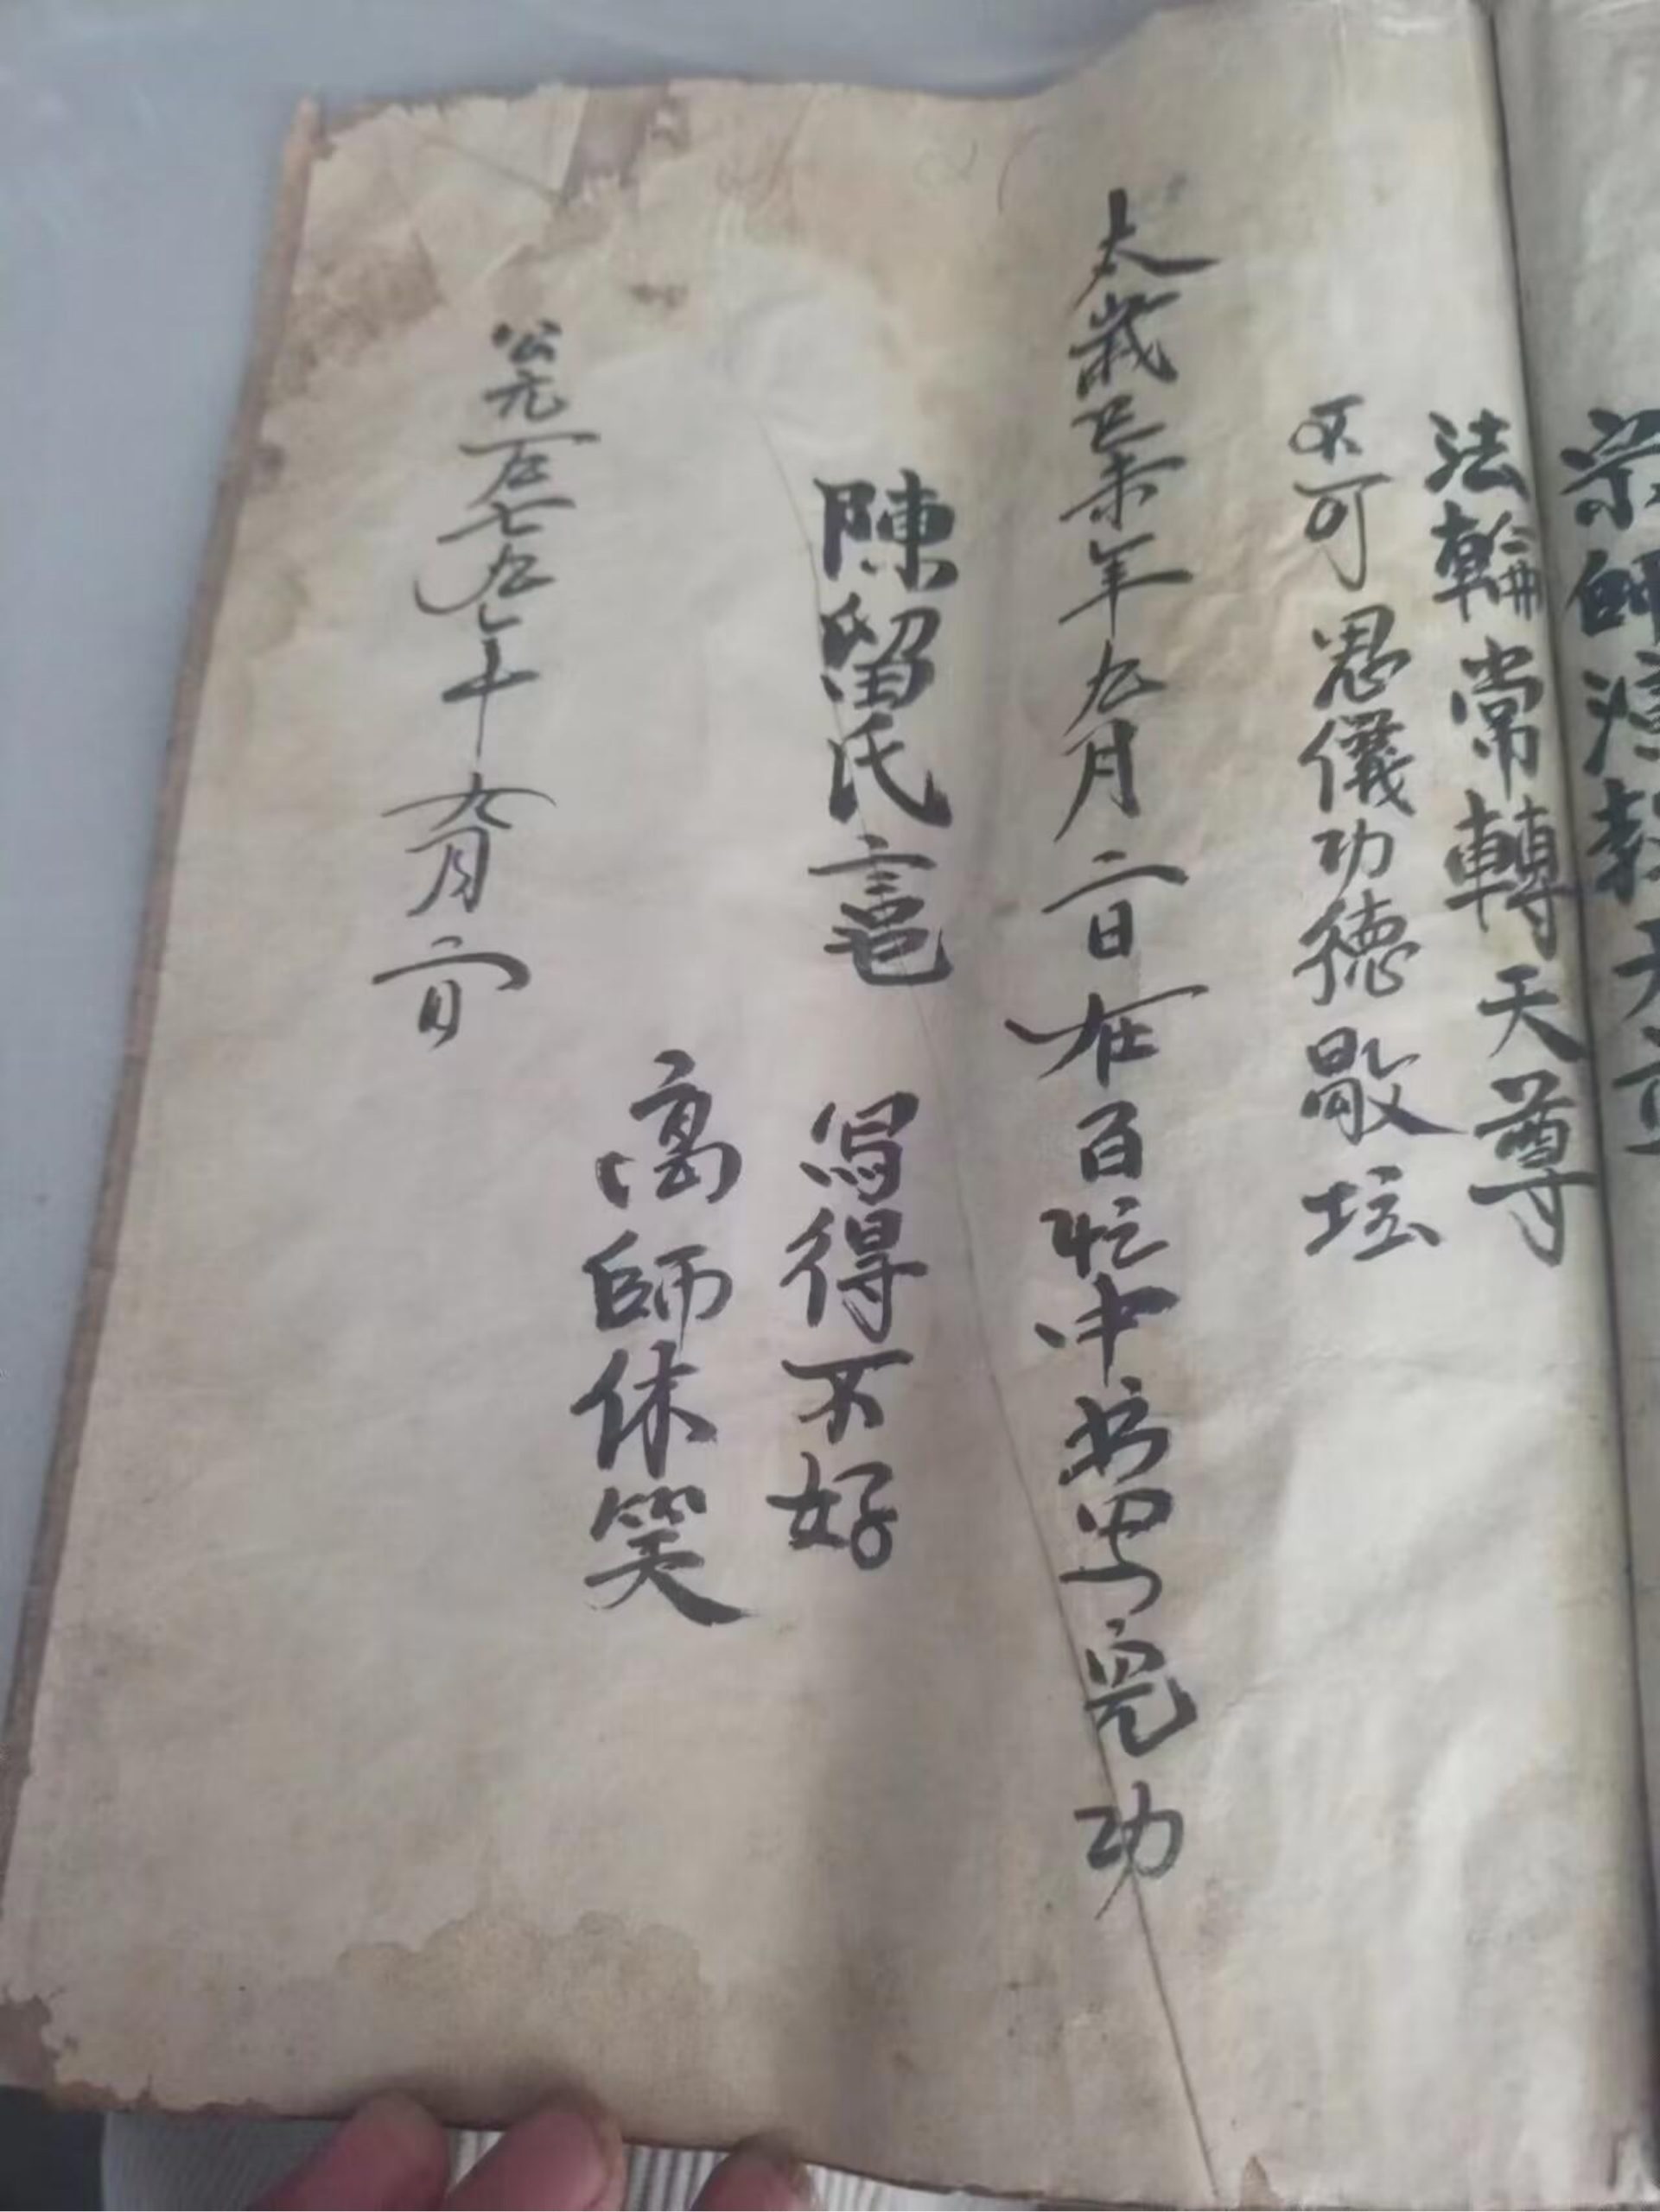 宗師演教天尊
法輪常轉天尊
不可思儀功德散坛
太歲己未年九月二日在百忙中书写完功
陳留氏 写得不好
高師休笑
公元一九七九年 九月二日